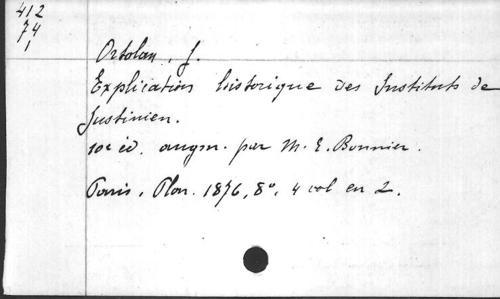 412
74
1
Ortolan, J.
Explication historique des Instituts de
Justinien.
10e éd. augm. par M. E. Bonnier.
Paris, Plon. 1876, 8°, 4 vol en 2.